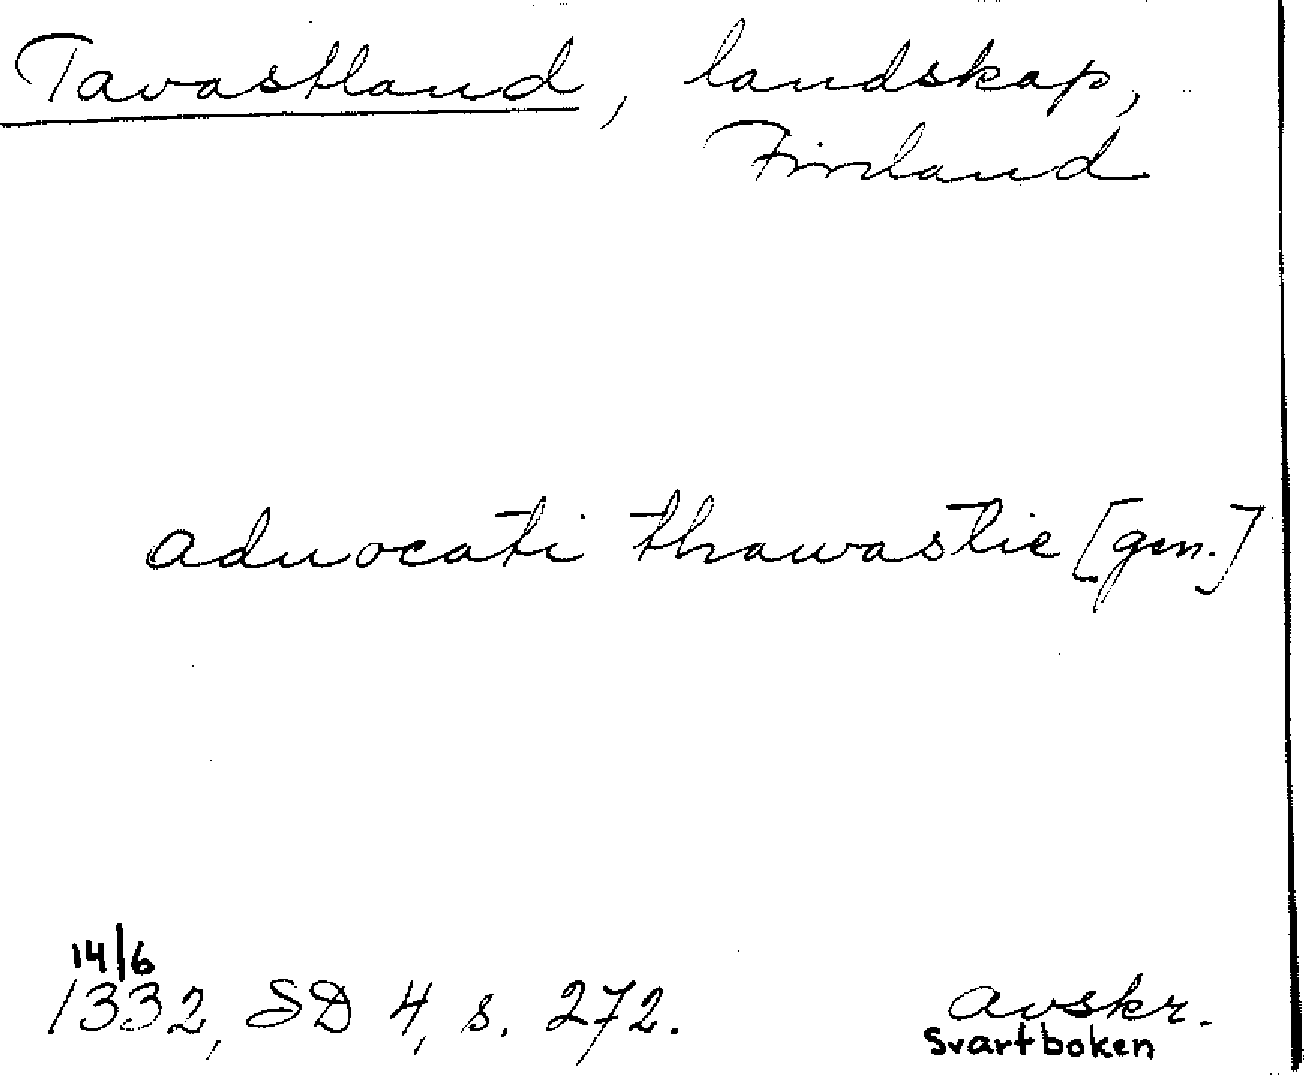 Tavastland, landskap,
Finland
aduocati thawastie [gen.]
14/6
1332, SD 4, s. 272.
avskr.
Svartboken